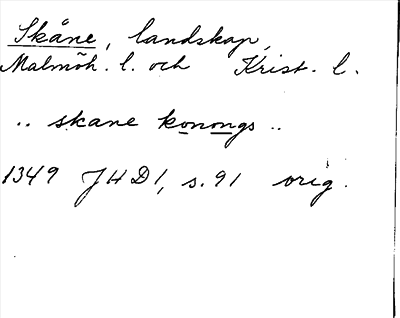 Skåne, landskap,
Malmöh. l. och Krist. l.
.. skane konongs ..
1349 JHD 1, s. 91 orig.